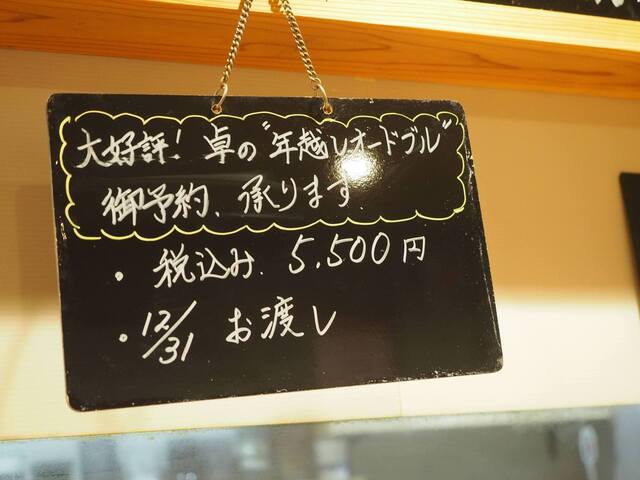 大好評! 卓の"年越しオードブル"
御予約、承ります
・税込み. 5.500円
・12/31 お渡し